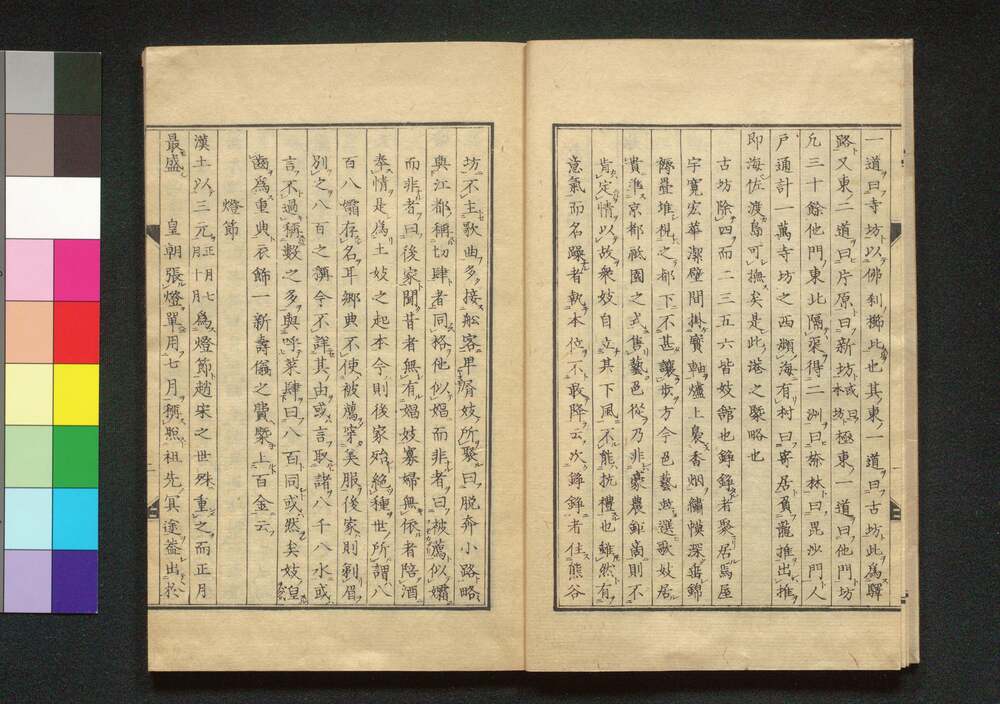 一道曰寺坊以佛刹櫛比也其東一道曰古坊此爲驛
路又東二道曰片原曰新坊或曰本坊極東一道曰他門坊
凢三十餘他門東北隔渠得二洲曰榛林曰毘沙門人
戸通計一萬寺坊之西瀕海有村曰寄居負龍推出推
即海佐渡島可撫矣是此港之槩略也
古坊除四而二三五六皆妓館也錚錚者聚居焉屋
宇寛宏華潔壁間掛寶軸爐上裊香烟繡幔深垂錦
褥疊堆視之都下不甚讓歩方今邑藝妓選歌妓居
貴準京都祇園之式售藝邑從乃非豪農鉅商則不
肯定情以故衆妓自立其下風不能抗禮也雖然有
意氣而名躁者執本位不敢降云次錚錚者住熊谷
坊不主歌曲多接舩客卑屑妓所聚曰脱奔小路略
與江都稱切肆者同格他似娼而非者曰被薦似孀
而非者曰後家聞昔者無有娼妓寡婦無依者陪酒
奉情是爲土妓之起本今則後家殆絶種世所謂八
百八孀存名耳郷典不使被薦穿美服後家則剃眉
別之八百之稱今不詳其由或言取諸八千八水或
言不過稱數之多與呼菜肆曰八百同或然矣妓
齒爲重典衣飾一新壽儀之費槩上百金云
燈節
漢土以三元正月七月十月爲燈節趙宋之世殊重之而正月
最盛 皇朝張燈單用七月稱照祖先冥途葢出於